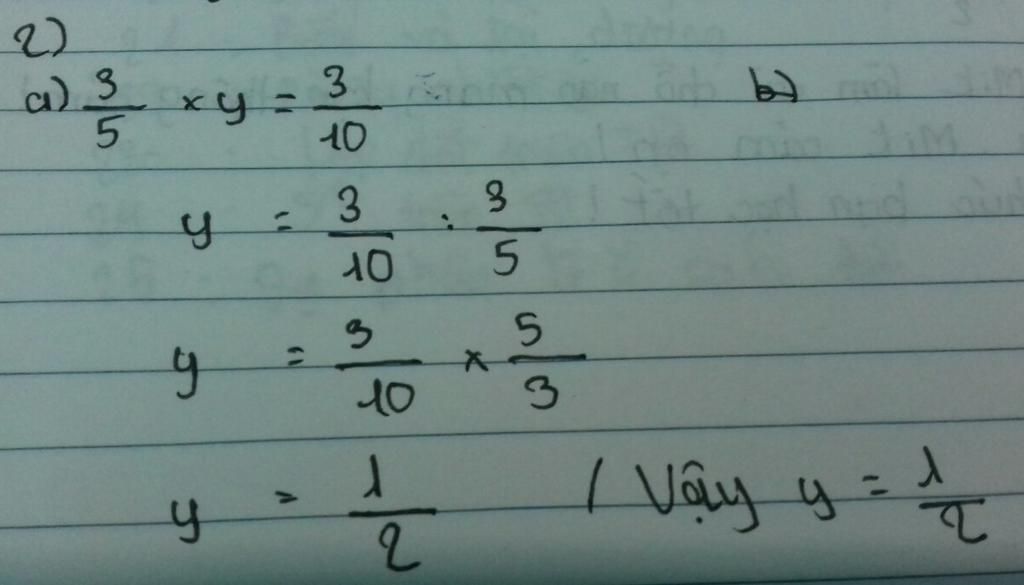 2)
a) 3/5 × y = 3/10 b)
y = 3/10 : 3/5
y = 3/10 × 5/3
y = 1/2 / Vậy y = 1/2